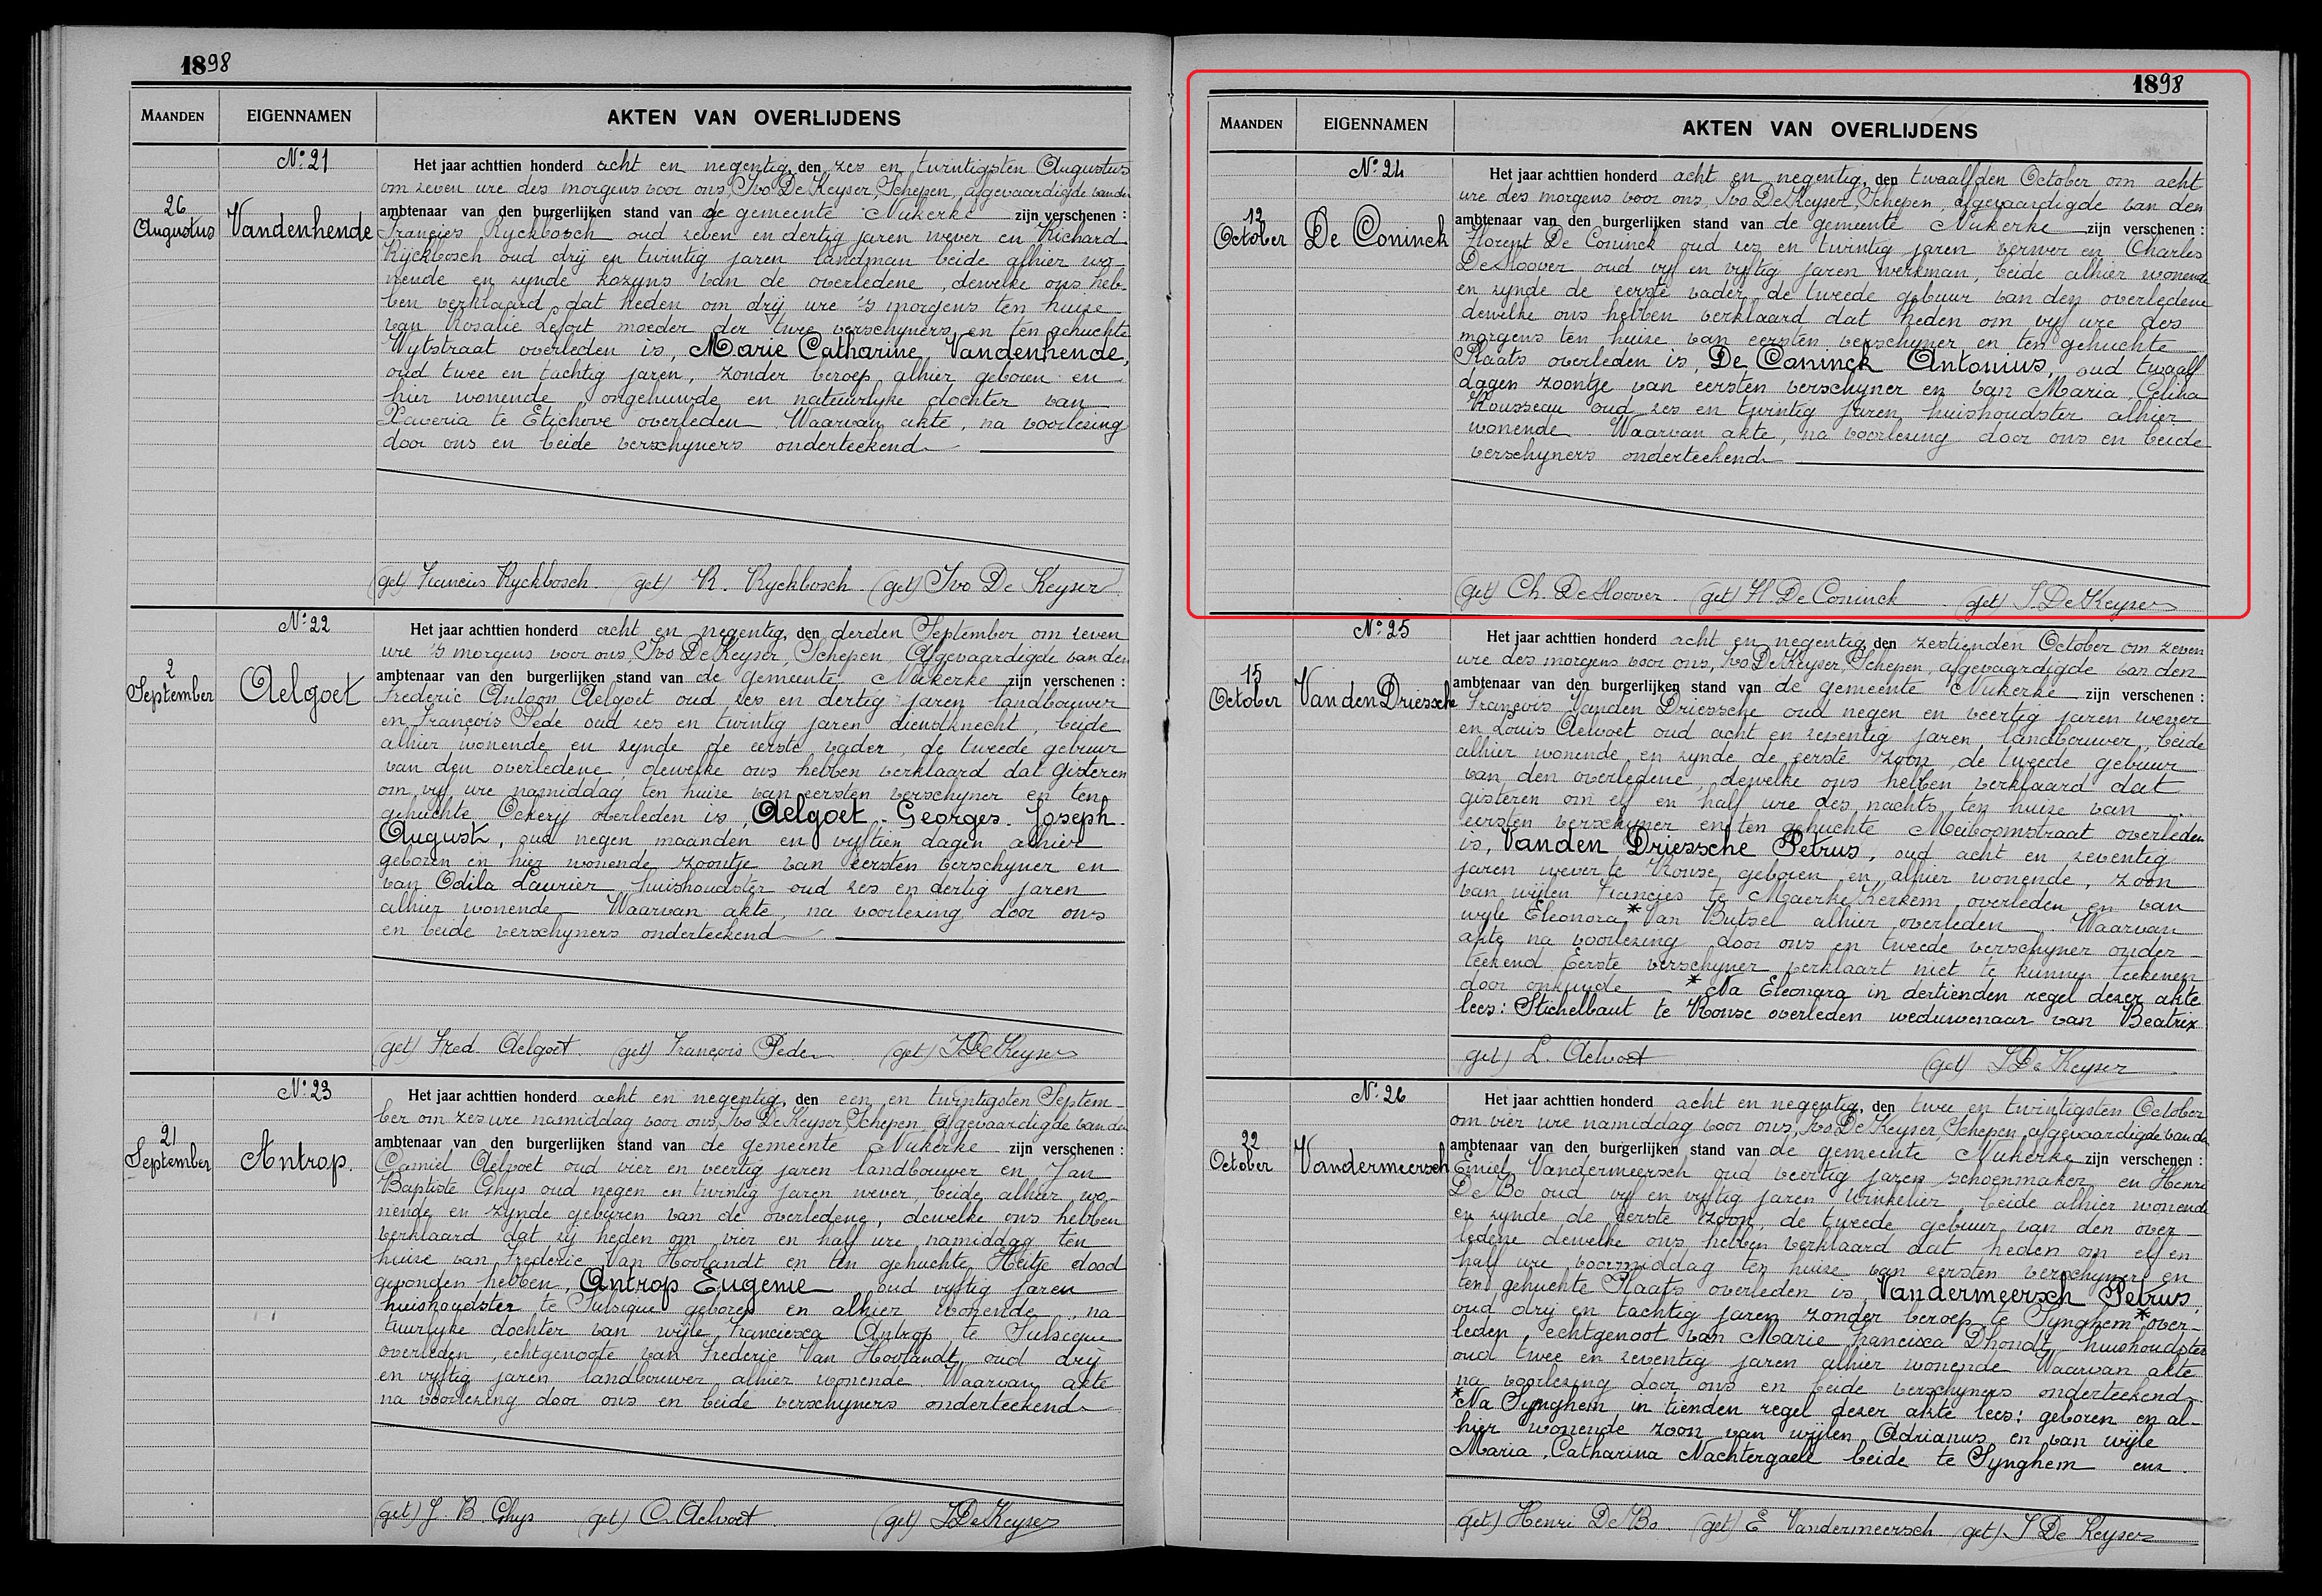 1898
MAANDEN EIGENNAMEN AKTEN VAN OVERLIJDENS
Nº 21
26 Augustus
Vandenhende
Het jaar achttien honderd acht en negentig, den zes en twintigsten Augustus
om zeven ure des morgens voor ons, Ivo De Keyser, Schepen, afgevaardigde van den
ambtenaar van den burgerlijken stand van de gemeente Nukerke zijn verschenen :
Francies Ryckbosch oud zeven en dertig jaren wever en Richard
Ryckbosch oud drij en twintig jaren landman beide alhier wo-
nende en zynde kozyns van de overledene, dewelke ons heb-
ben verklaard dat heden om drij ure 's morgens ten huize
van Rosalie Lefort moeder der twee verschyners en ten gehuchte
Wytstraat overleden is, Marie Catharine Vandenhende,
oud twee en tachtig jaren, zonder beroep alhier geboren en
hier wonende, ongehuwde en natuurlyke dochter van
Xaveria te Etichove overleden. Waarvan akte, na voorlezing
door ons en beide verschyners onderteekend
(get) Francies Ryckbosch. (get) R. Ryckbosch. (get) Ivo De Keyser
Nº 22
2 September
Aelgoet
Het jaar achttien honderd acht en negentig, den derden September om zeven
ure 's morgens voor ons, Ivo De Keyser, Schepen, Afgevaardigde van den
ambtenaar van den burgerlijken stand van de gemeente Nukerke zijn verschenen :
Frederic Antoon Aelgoet oud zes en dertig jaren landbouwer
en François Pede oud zes en twintig jaren dienstknecht, beide
alhier wonende en zynde de eerste vader, de tweede gebuur
van den overledene, dewelke ons hebben verklaard dat gisteren
om vyf ure namiddag ten huize van eersten verschyner en ten
gehuchte Ockery overleden is, Aelgoet Georges Joseph
August, oud negen maanden en vyftien dagen alhier
geboren en hier wonende, zoontje van eersten verschyner en
van Odila Laurier, huishoudster oud zes en dertig jaren
alhier wonende Waarvan akte, na voorlezing door ons
en beide verschyners onderteekend
(get) Fred. Aelgoet. (get) François Pede (get) I De Keyser
Nº 23
21 September
Antrop.
Het jaar achttien honderd acht en negentig, den een en twintigsten Septem-
ber om zes ure namiddag voor ons, Ivo De Keyser Schepen afgevaardigde van den
ambtenaar van den burgerlijken stand van de gemeente Nukerke zijn verschenen :
Camiel Aelvoet oud vier en veertig jaren landbouwer en Jan
Baptiste Ghys oud negen en twintig jaren wever, beide alhier wo-
nende en zynde geburen van de overledene, dewelke ons hebben
verklaard dat zy heden om vier en half ure namiddag ten
huize van Frederic Van Hoolandt en ten gehuchte Heitje dood
gevonden hebben, Antrop Eugenie oud vyftig jaren
huishoudster te Sulsique geboren en alhier wonende, na-
tuurlyke dochter van wijle Francisca Antrop te Sulsique
overleden, echtgenoote van Frederic Van Hoolandt, oud drij
en vyftig jaren landbouwer alhier wonende Waarvan akte
na voorlezing door ons en beide verschyners onderteekend
(get) J. B. Ghys (get) C. Aelvoet (get) I De Keyser
1898
MAANDEN EIGENNAMEN AKTEN VAN OVERLIJDENS
Nº 24
12 October
De Coninck
Het jaar achttien honderd acht en negentig, den twaalfden October om acht
ure des morgens voor ons, Ivo De Keyser, Schepen, afgevaardigde van den
ambtenaar van den burgerlijken stand van de gemeente Nukerke zijn verschenen :
Florent De Coninck oud zes en twintig jaren verwer en Charles
De Hoover oud vyf en vyftig jaren werkman, beide alhier wonende
en zynde de eerste vader, de tweede gebuur van den overledene
dewelke ons hebben verklaard dat heden om vyf ure des
morgens ten huize van eersten verschyner en ten gehuchte
Plaats overleden is, De Coninck Antonius, oud twaalf
dagen zoontje van eersten verschyner en van Maria Celina
Rousseau oud zes en twintig jaren, huishoudster alhier
wonende. Waarvan akte, na voorlezing door ons en beide
verschyners onderteekend
(get) Ch. De Hoover. (get) Fl De Coninck (get) I. De Keyser
Nº 25
15 October
Van den Driessche
Het jaar achttien honderd acht en negentig, den zestienden October om zeven
ure des morgens voor ons, Ivo De Keyser, Schepen, afgevaardigde van den
ambtenaar van den burgerlijken stand van de gemeente Nukerke zijn verschenen :
François Vanden Driessche oud negen en veertig jaren wever
en Louis Aelvoet oud acht en zeventig jaren landbouwer, beide
alhier wonende en zynde de eerste zoon, de tweede gebuur
van den overledene, dewelke ons hebben verklaard dat
gisteren om elf en half ure des nachts ten huize van
eersten verschyner en ten gehuchte Meiboomstraat overleden
is, Vanden Driessche Petrus, oud acht en zeventig
jaren wever te Ronse geboren en alhier wonende, zoon
van wijlen Francies te Maerke Kerkem overleden en van
wyle Eleonora * Van Butsel alhier overleden. Waarvan
akte na voorlezing door ons en tweede verschyner onder-
teekend Eerste verschyner verklaart niet te kunnen teekenen
door onkunde * Na Eleonora in dertienden regel dezer akte
lees: Stichelbaut te Ronse overleden weduwenaar van Beatrix
(get) L. Aelvoet (get) I De Keyser
Nº 26
22 October
Vandermeersch
Het jaar achttien honderd acht en negentig, den twee en twintigsten October
om vier ure namiddag voor ons, Ivo De Keyser, Schepen afgevaardigde van den
ambtenaar van den burgerlijken stand van de gemeente Nukerke zijn verschenen :
Emiel Vandermeersch oud veertig jaren schoenmaker en Henri
De Bo oud vyf en vyftig jaren winkelier, beide alhier wonende
en zynde de eerste zoon, de tweede gebuur van den over-
ledene dewelke ons hebben verklaard dat heden om elf en
half ure voormiddag ten huize van eersten verschyner en
ten gehuchte Plaats overleden is, Vandermeersch Petrus,
oud drij en tachtig jaren zonder beroep te Synghem * over-
leden, echtgenoot van Marie Francisca Dhondt, huishoudster
oud twee en zeventig jaren alhier wonende Waarvan akte
na voorlezing door ons en beide verschyners onderteekend
* Na Synghem in tienden regel dezer akte lees: geboren en al-
hier wonende zoon van wijlen Adrianus en van wijle
Maria Catharina Nachtergaele beide te Synghem enz.
(get) Henri De Bo. (get) E Vandermeersch (get) I De Keyser